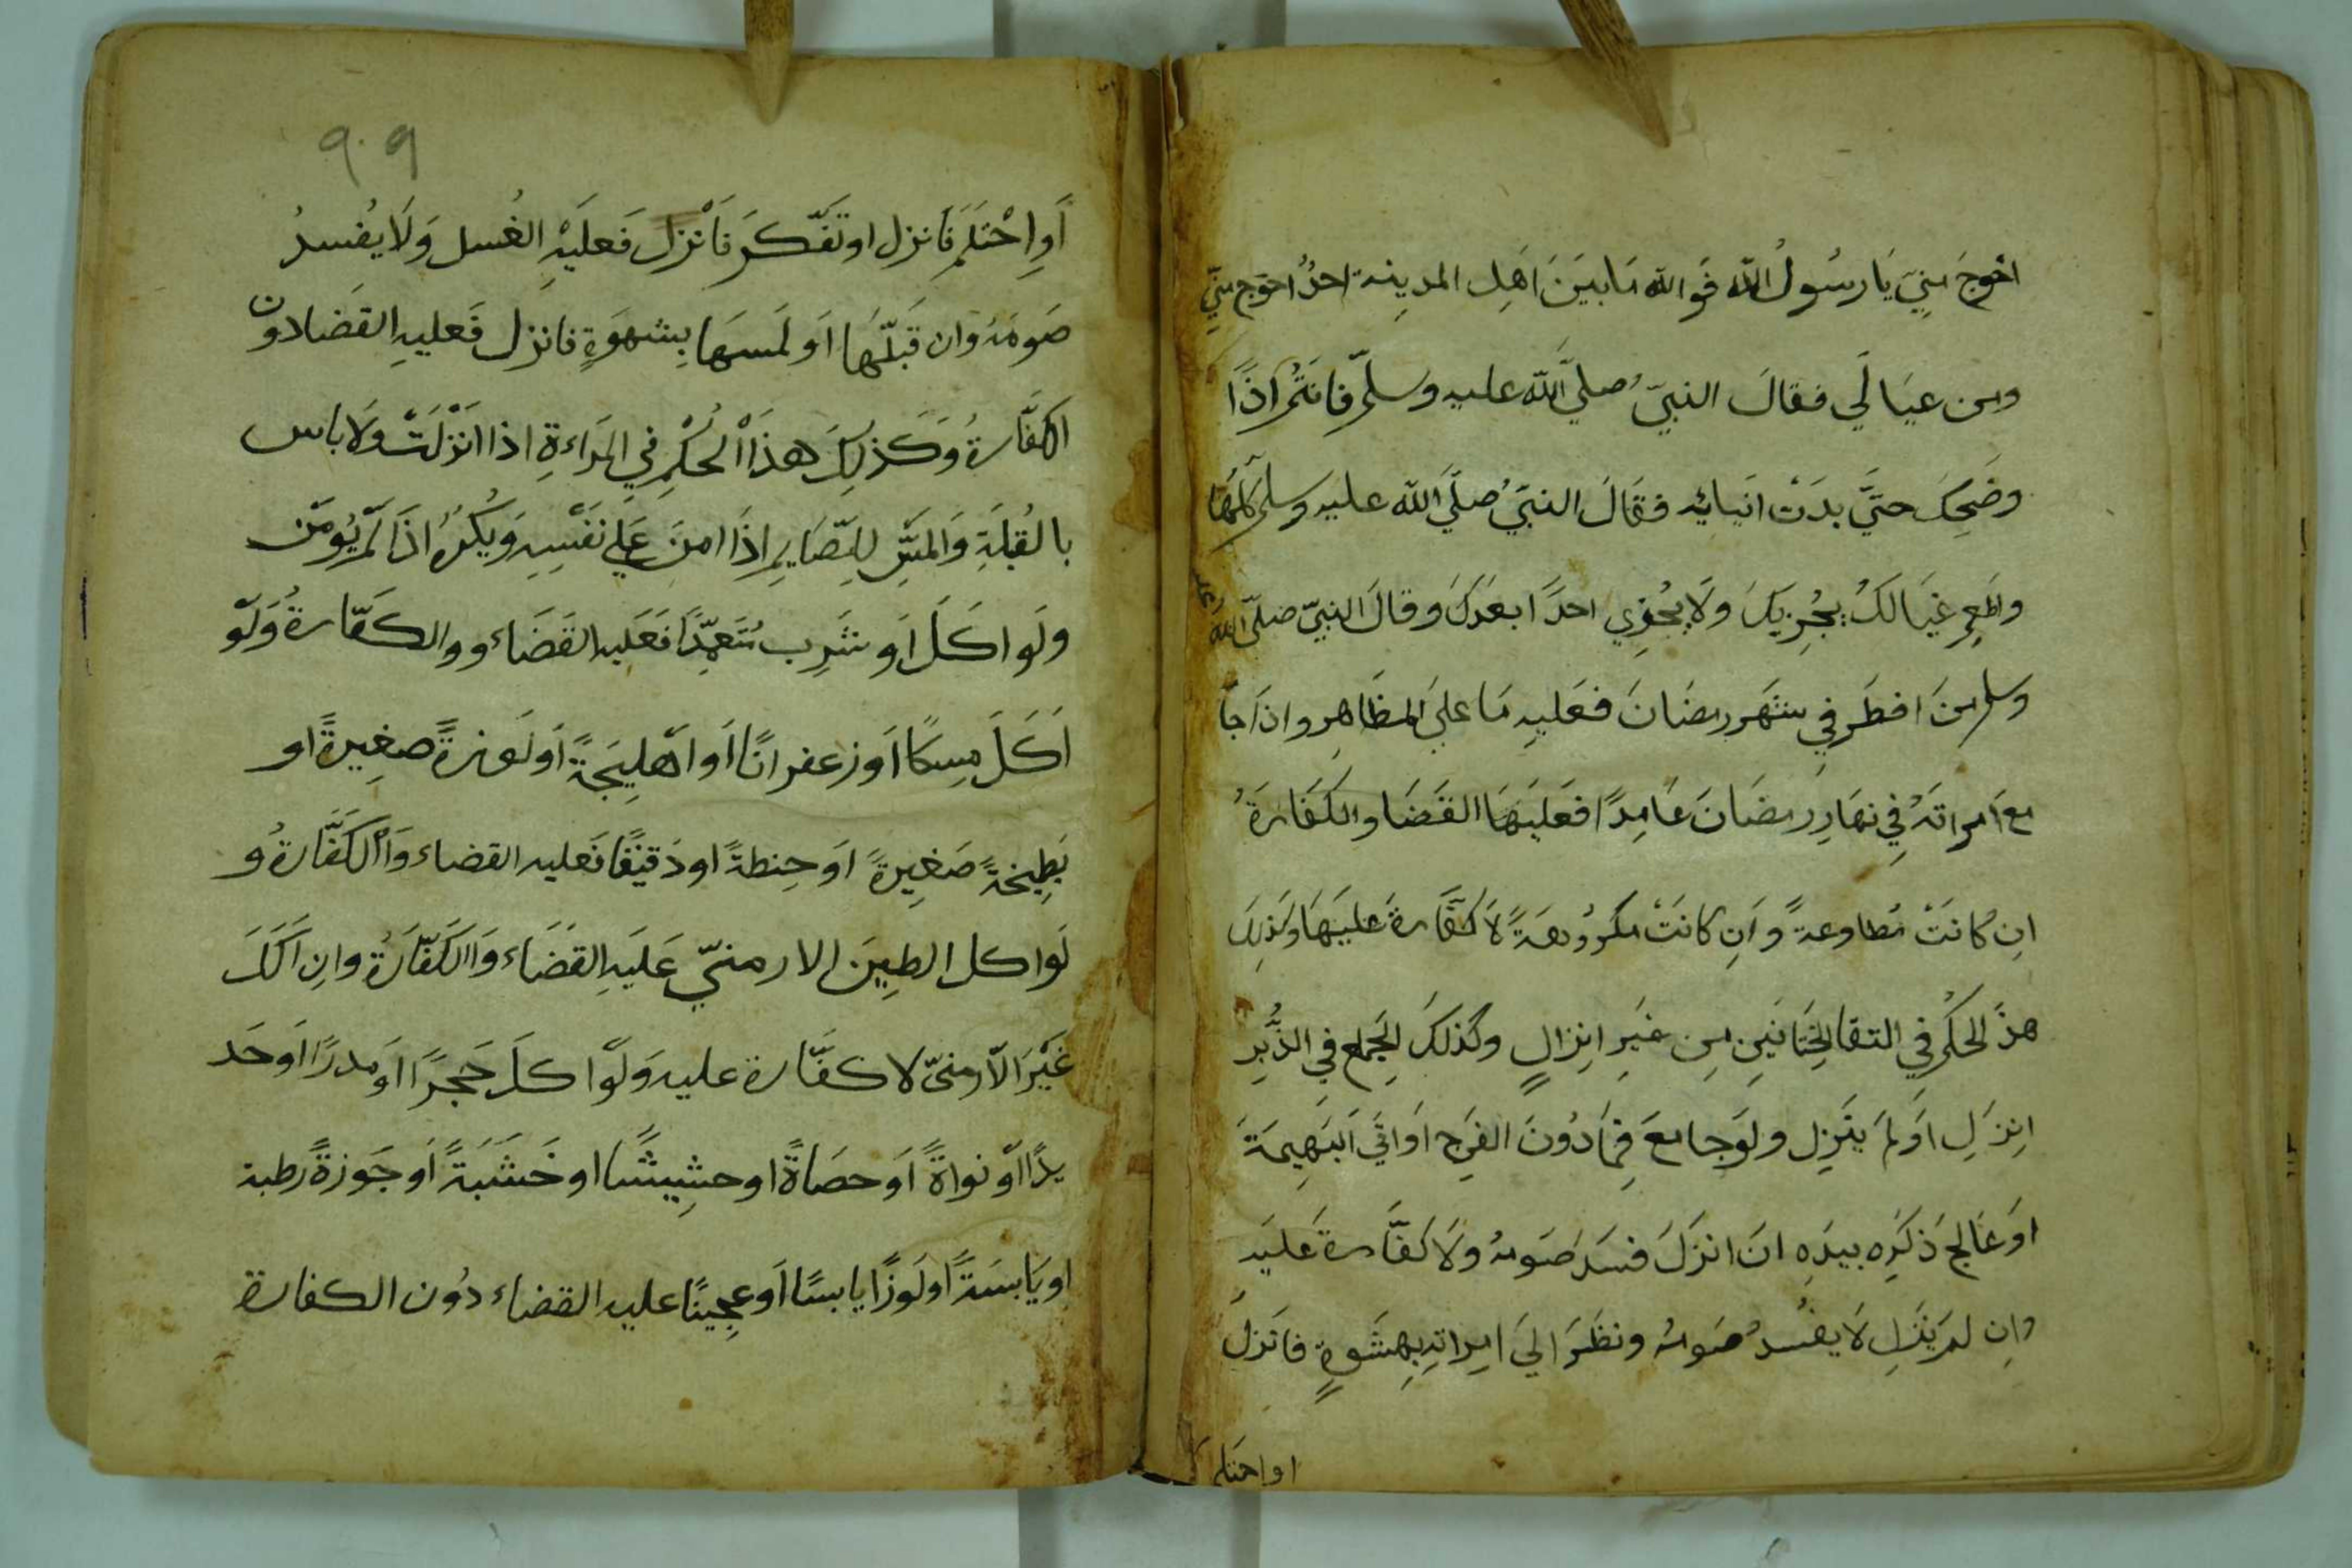 احْوَجَ مِنِّي يَا رسُولُ اللّه فَوَاللّه مَا بَيَنَ اَهِل المدِينة احدُ احْوَج مِنِّي
ومن عيَالَي فقالَ النبيّ صليَّ اللّه عليه وسلمّ فانتُم اذًا
وضَحِكَ حتيَّ بدَتْ انيابه فقَالَ النبيُ صلَّي اللّه عليه وسلم كلهَا
واَطعِم عَيَالكُ يجُزيكَ ولَا يجُزِي احدًا بعدَكَ وقالَ النبيّ صلّي اللّه عليه
وسلم منَ افطَر فِي شَهَر رمضَانَ فعَليهِ مَا عليَ المظَاهِر واذَا جا
مع امراتهُ فِي نهَارِ رمضَانَ عَامِدًا فعَليَهَا القضَا والكفَارةُ
انِ كانَتْ مُطاوعةً وَاَنِ كانَتْ مكروُهةً لَا كفَّارةَ عَليَهَا وكذلِكَ
هذَ الحكمُ فِي التقا الختَانَينِ مِن غيَرِ انِزالٍ وكذلكَ الجمِع فِي الدُّبُرِ
انِزَلِ اَو لَم ينَزِل ولوَ جامعَ فِيمَا دُونَ الفرَج اوَ اتَي اَلبَهِيمَةَ
اوَ عَالجَ ذكَرِه بيدَهِ انَ انزَلَ فسَدَ صَومهُ ولَا كفَّارةَ عَليَه
وانِ لمَ ينَزِل لَا يفسُدُ صَومهُ ونظَرَ اليَ امِراتِهِ بِهشَوةٍ فانَزلَ
او احتلم
٩٠٩
اَوِاحْتَلَم فَانزل اوتَفَّكرَ فاَنْزل فَعلَيْهِ الغُسل وَلَا يُفسدُ
صَومَهُ وان قَبَّلَهَا اَو لمَسهَا بِشهوَةٍ فانزل فَعليهِ القضَا دون
الكفَّارةُ وَكَذلِكَ هذَا اْلحُكْمِ فِي المَراءةِ اذا انْزَلَتْ وَلا باس
بالقُبلَةِ وَالمَسِّ لِلصَّايِمِ اِذَا امِنَ عَلَي نفْسِهِ وَيكُرهُ اذَا لَم يُومَن
ولَو اكَلَ اَو شَرِب مُتَعمِّدًا فَعَليه القَضَاء ووالكَفّارةُ وَلَو
اَكَلَ مِسكًا اَو زعفرانًا اَو اَهلِيجَةً اَو لَوزةً صغِيرةً او
بَطِيخةً صَغِيرةً اَو حِنطةً او دَقِيقًا فَعليه القضاء وَاَلكَفَّارةُ و
لَو اكل الطِيَن الارمنيّ عَلَيهِ القضَاء وَالكَفّارَةُ وانِ اَكَلَ
غَيْرَ الاَرمنيّ لا كفّارة عليه وَلَو اكلَ حَجرًا اَو مدرًا اَو حَد
يدًا اَو نواةً اَو حصَاةً او حشِيشًا او خَشَبَةً اَو جَوزةً رطبة
او يَابسَةً او لَوزًا يابسًا اَو عجِينًا عليه القضاء دُون الكفارة